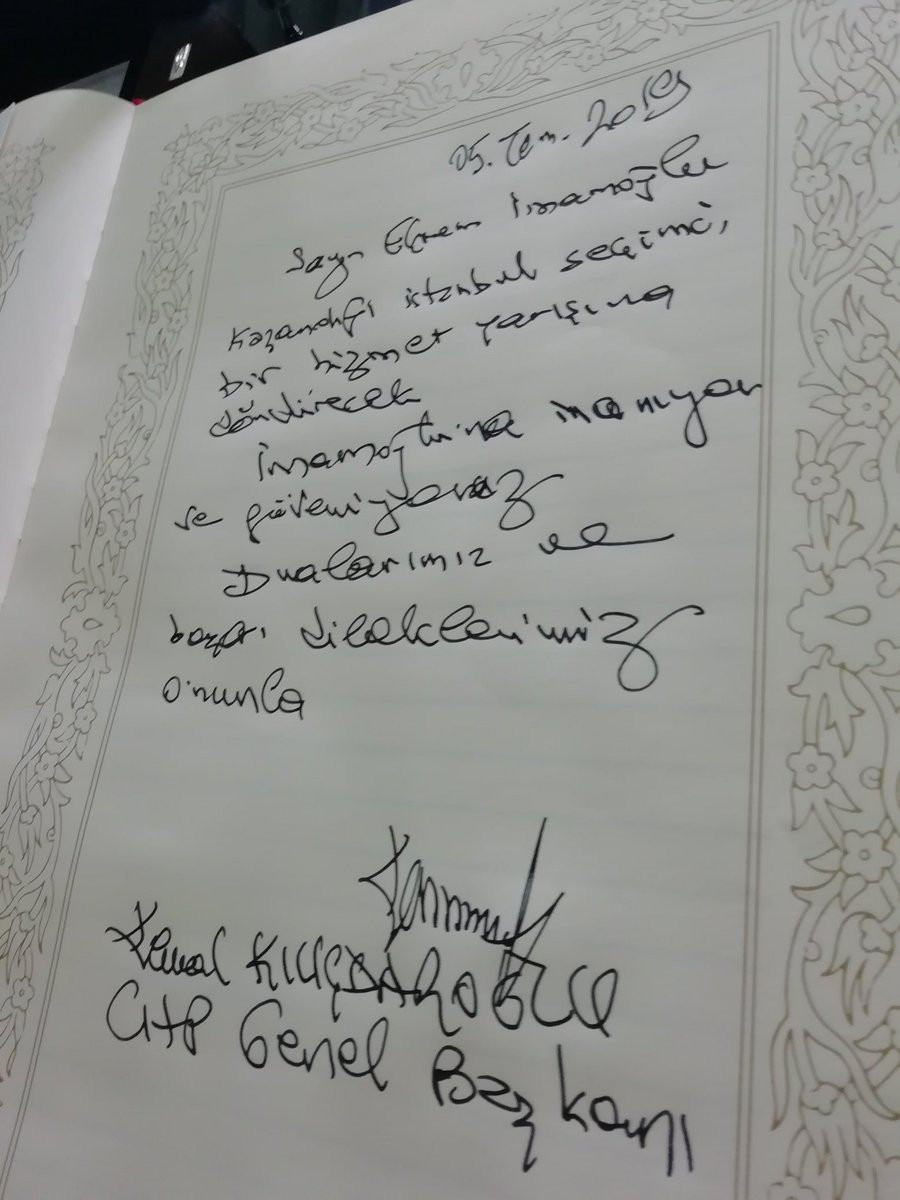 05. Tem. 2019
Sayın Ekrem İmamoğlu
kazandığı İstanbul seçimi,
bir hizmet yarışına
döndürecek
İmamoğlu'na inanıyor
ve güveniyoruz
Dualarımız ve
başarı dileklerimiz
onunla
Kemal KILIÇDAROĞLU
CHP Genel Başkanı